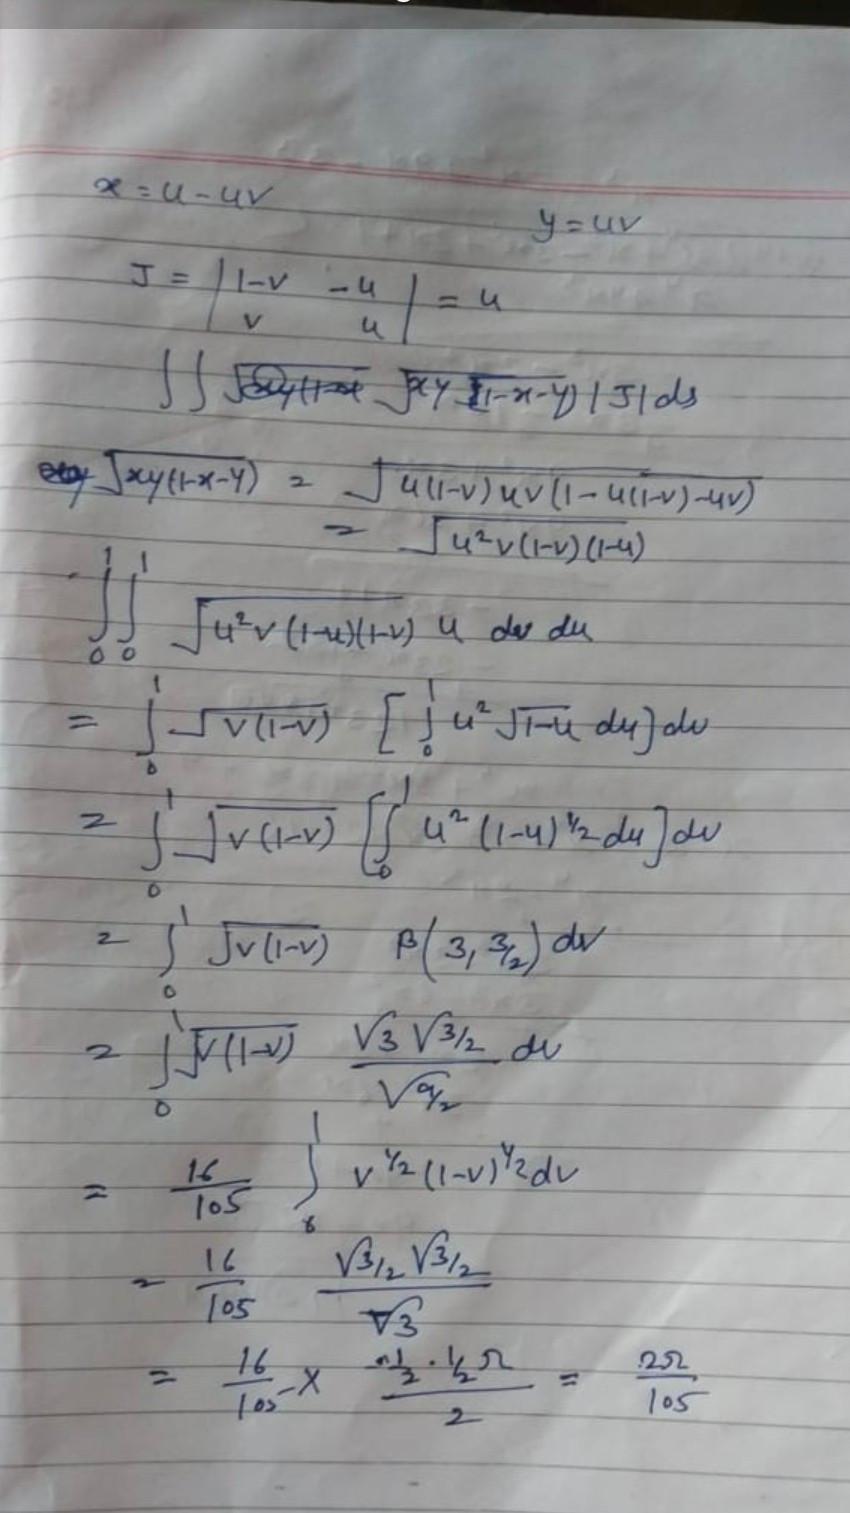 x = u - uv
y = uv
J = | 1-v -u | = u
| v u |
∫∫ √xy(1-x √xy (1-x-y) |J| ds
√xy(1-x-y) = √u(1-v)uv(1-u(1-v)-uv)
= √u²v(1-v)(1-u)
∫₀¹ ∫₀¹ √u²v(1-u)(1-v) u dv du
= ∫₀¹ √v(1-v) [∫₀¹ u² √1-u du] dv
= ∫₀¹ √v(1-v) [∫₀¹ u² (1-u)^1/2 du] dv
= ∫₀¹ √v(1-v) β(3, 3/2) dv
= ∫₀¹ √v(1-v) √3 √3/2 / √9/2 dv
= 16/105 ∫₀¹ v^1/2 (1-v)^1/2 dv
= 16/105 √3/2 √3/2 / √3
= 16/105 × 1/2 · 1/2 π / 2 = 2π/105